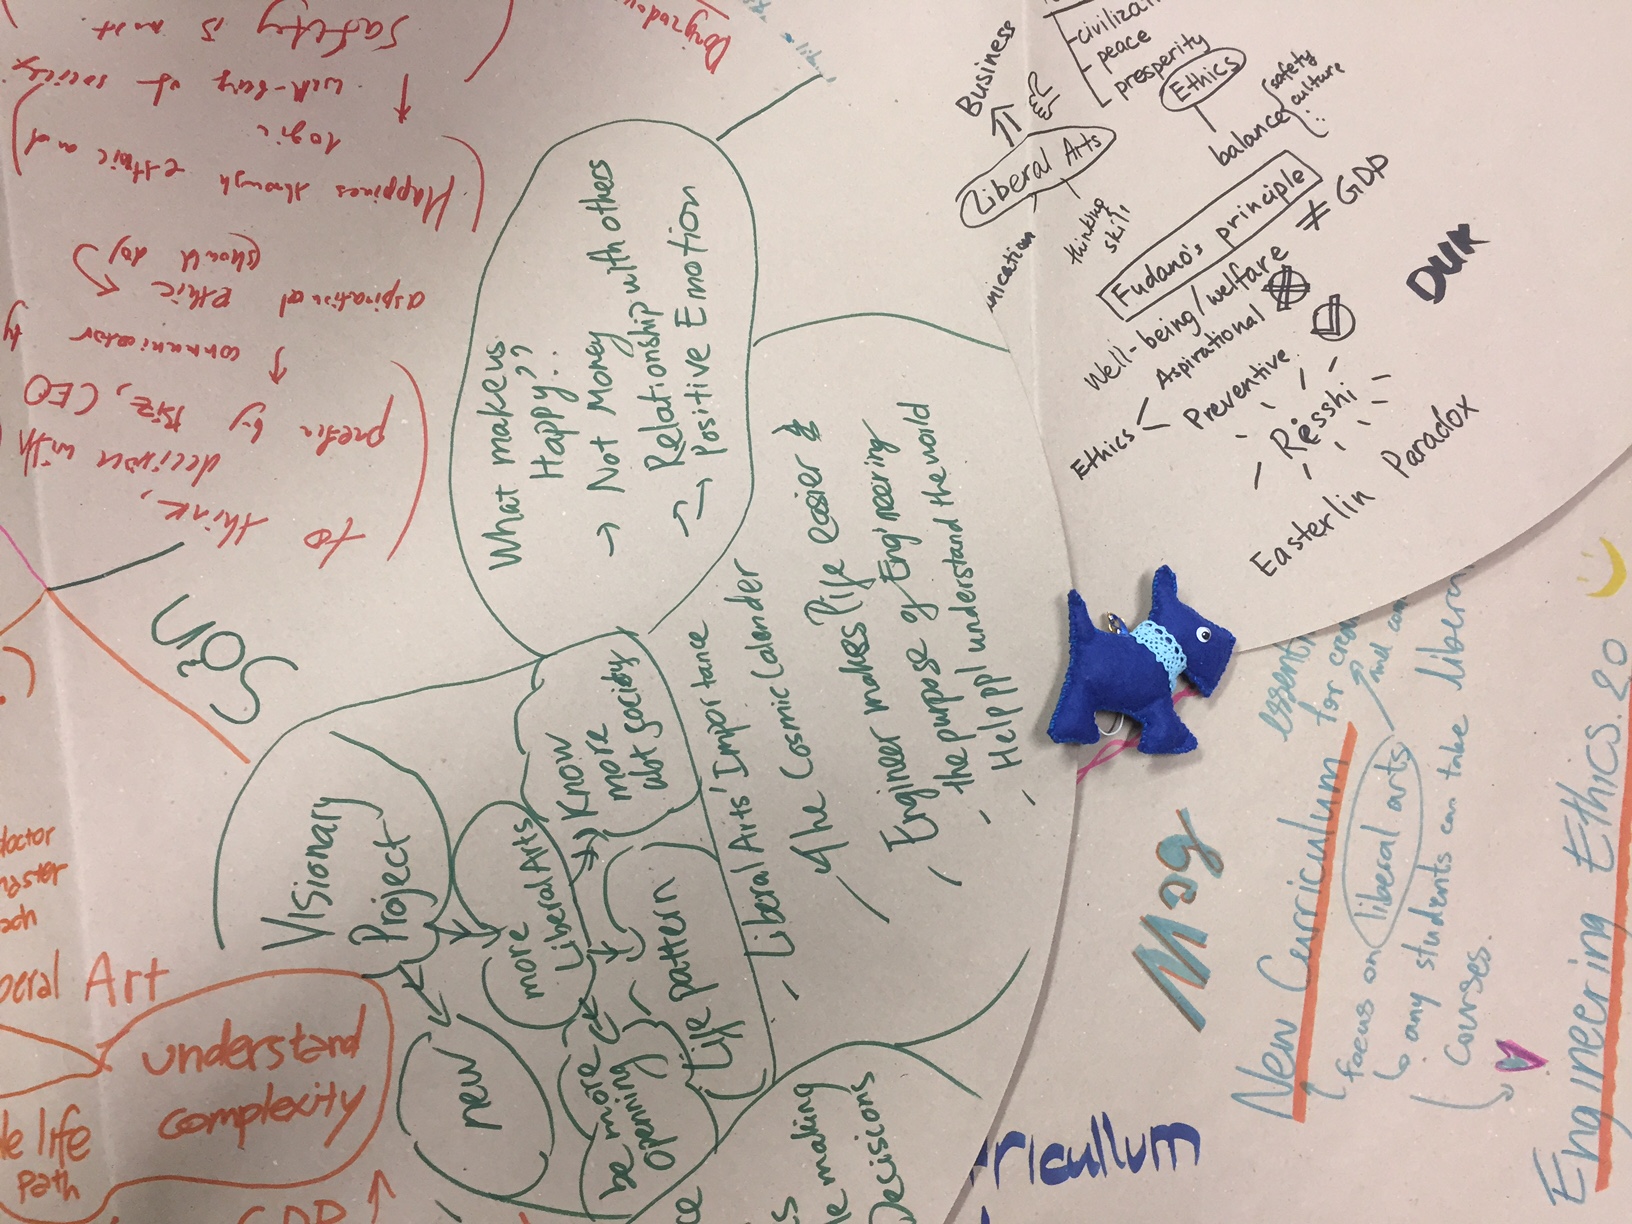 civiliza
- peace
prosperity
Ethics
balance
safety
culture
Business
Liberal Arts
thinking
skill
Fudano's principle
≠ GDP
Well-being/welfare
Ethics < Aspirational
Preventive
Resshi
Easterlin Paradox
DUK
What makes us
Happy??
→ Not Money
→ Relationship with others
→ Positive Emotion
Visionary
Project
new
more
Liberal Arts
Know
more
abt society
be more
openning
Life pattern
- Liberal Arts' Importance
The Cosmic Calender
Engineer makes life easier &
the purpose of Engineering
- Help ppl understand the world
making
Decisions
Safety is most
well-being of society
Happines through ethic and
logic
aspirational ethic
(should do)
communicator
prefer by Biz, CEO
decision with
to think,
doctor
Art
understand
complexity
life
Path
GDP ↑
ricullum
Mag
New Curriculum
focus on liberal arts
↳ any students can take liberal
courses.
for
and can
Engineering Ethics. 20